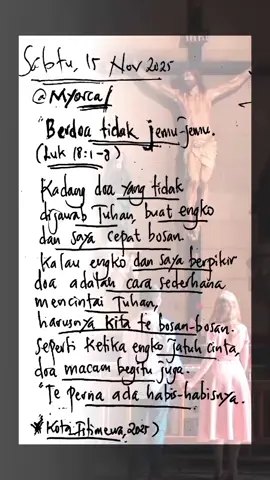 Sabtu, 15 Nov 2025
@Myorca/
"Berdoa tidak jemu-jemu.
(Luk 18:1-8)
Kadang doa yang tidak
dijawab Tuhan, buat engko
dan saya cepat bosan.
Kalau engko dan saya berpikir
doa adalah cara sederhana
mencintai Tuhan,
harusnya kita te bosan-bosan.
Seperti Ketika engko jatuh cinta,
doa macam begitu juga.
"Te perna ada habis-habisnya.
Kota Istimewa, 2025)